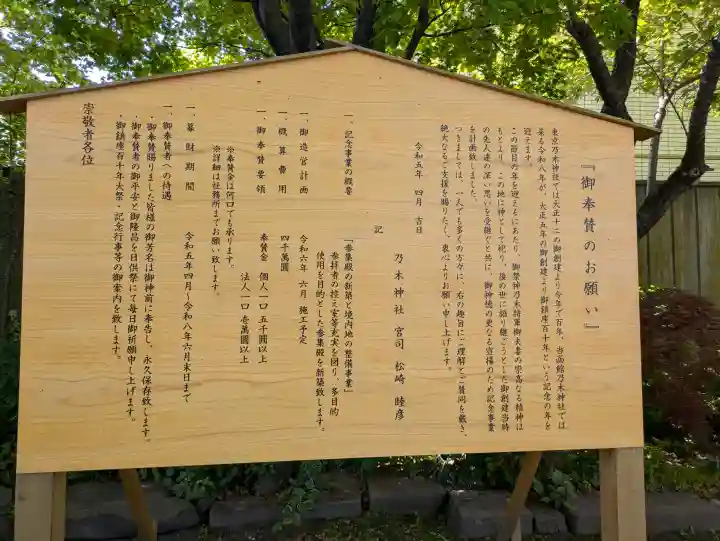 『御奉賛のお願い』
東京乃木神社では大正十二の御創建より今年で百年、当函館乃木神社では
来る令和八年が、大正五年の御創建より御鎮座百十年という記念の年を
迎えます。
この節目の年を迎えるにあたり、御祭神乃木将軍御夫妻の崇高なる精神は
もとより、この地に神として祀り、後の世に語り継ごうとした御創建当時
の先人達の深い思いを受継ぐと共に、御神徳の更なる宣揚のため記念事業
を計画致しました。
つきましては、一人でも多くの方々に、右の趣旨にご理解とご賛同を戴き、
絶大なるご支援を賜りたく、衷心よりお願い申し上げます。
令和五年 四月 吉日
乃木神社 宮司 松崎 睦彦
記
一、記念事業の概要 「参集殿の新築と境内地の整備事業」
参拝者の控え室等充実を図り、多目的
使用を目的とした参集殿を新築致します。
一、御造営計画 令和六年 六月 施工予定
一、概算費用 四千萬圓
一、御奉賛要領 奉賛金 個人 一口 五千圓以上
法人 一口 壱萬圓以上
※奉賛金は何口でも承ります。
※詳細は社務所までお願い致します。
一、募財期間 令和五年四月〜令和八年六月末日まで
一、御奉賛者への待遇
・御奉賛賜りました皆様の御芳名は御神前に奉告し、永久保存致します。
・御奉賛者の御平安と御隆昌を日供祭にて毎日御祈願申し上げます。
・御鎮座百十年大祭・記念行事等の御案内を致します。
崇敬者各位